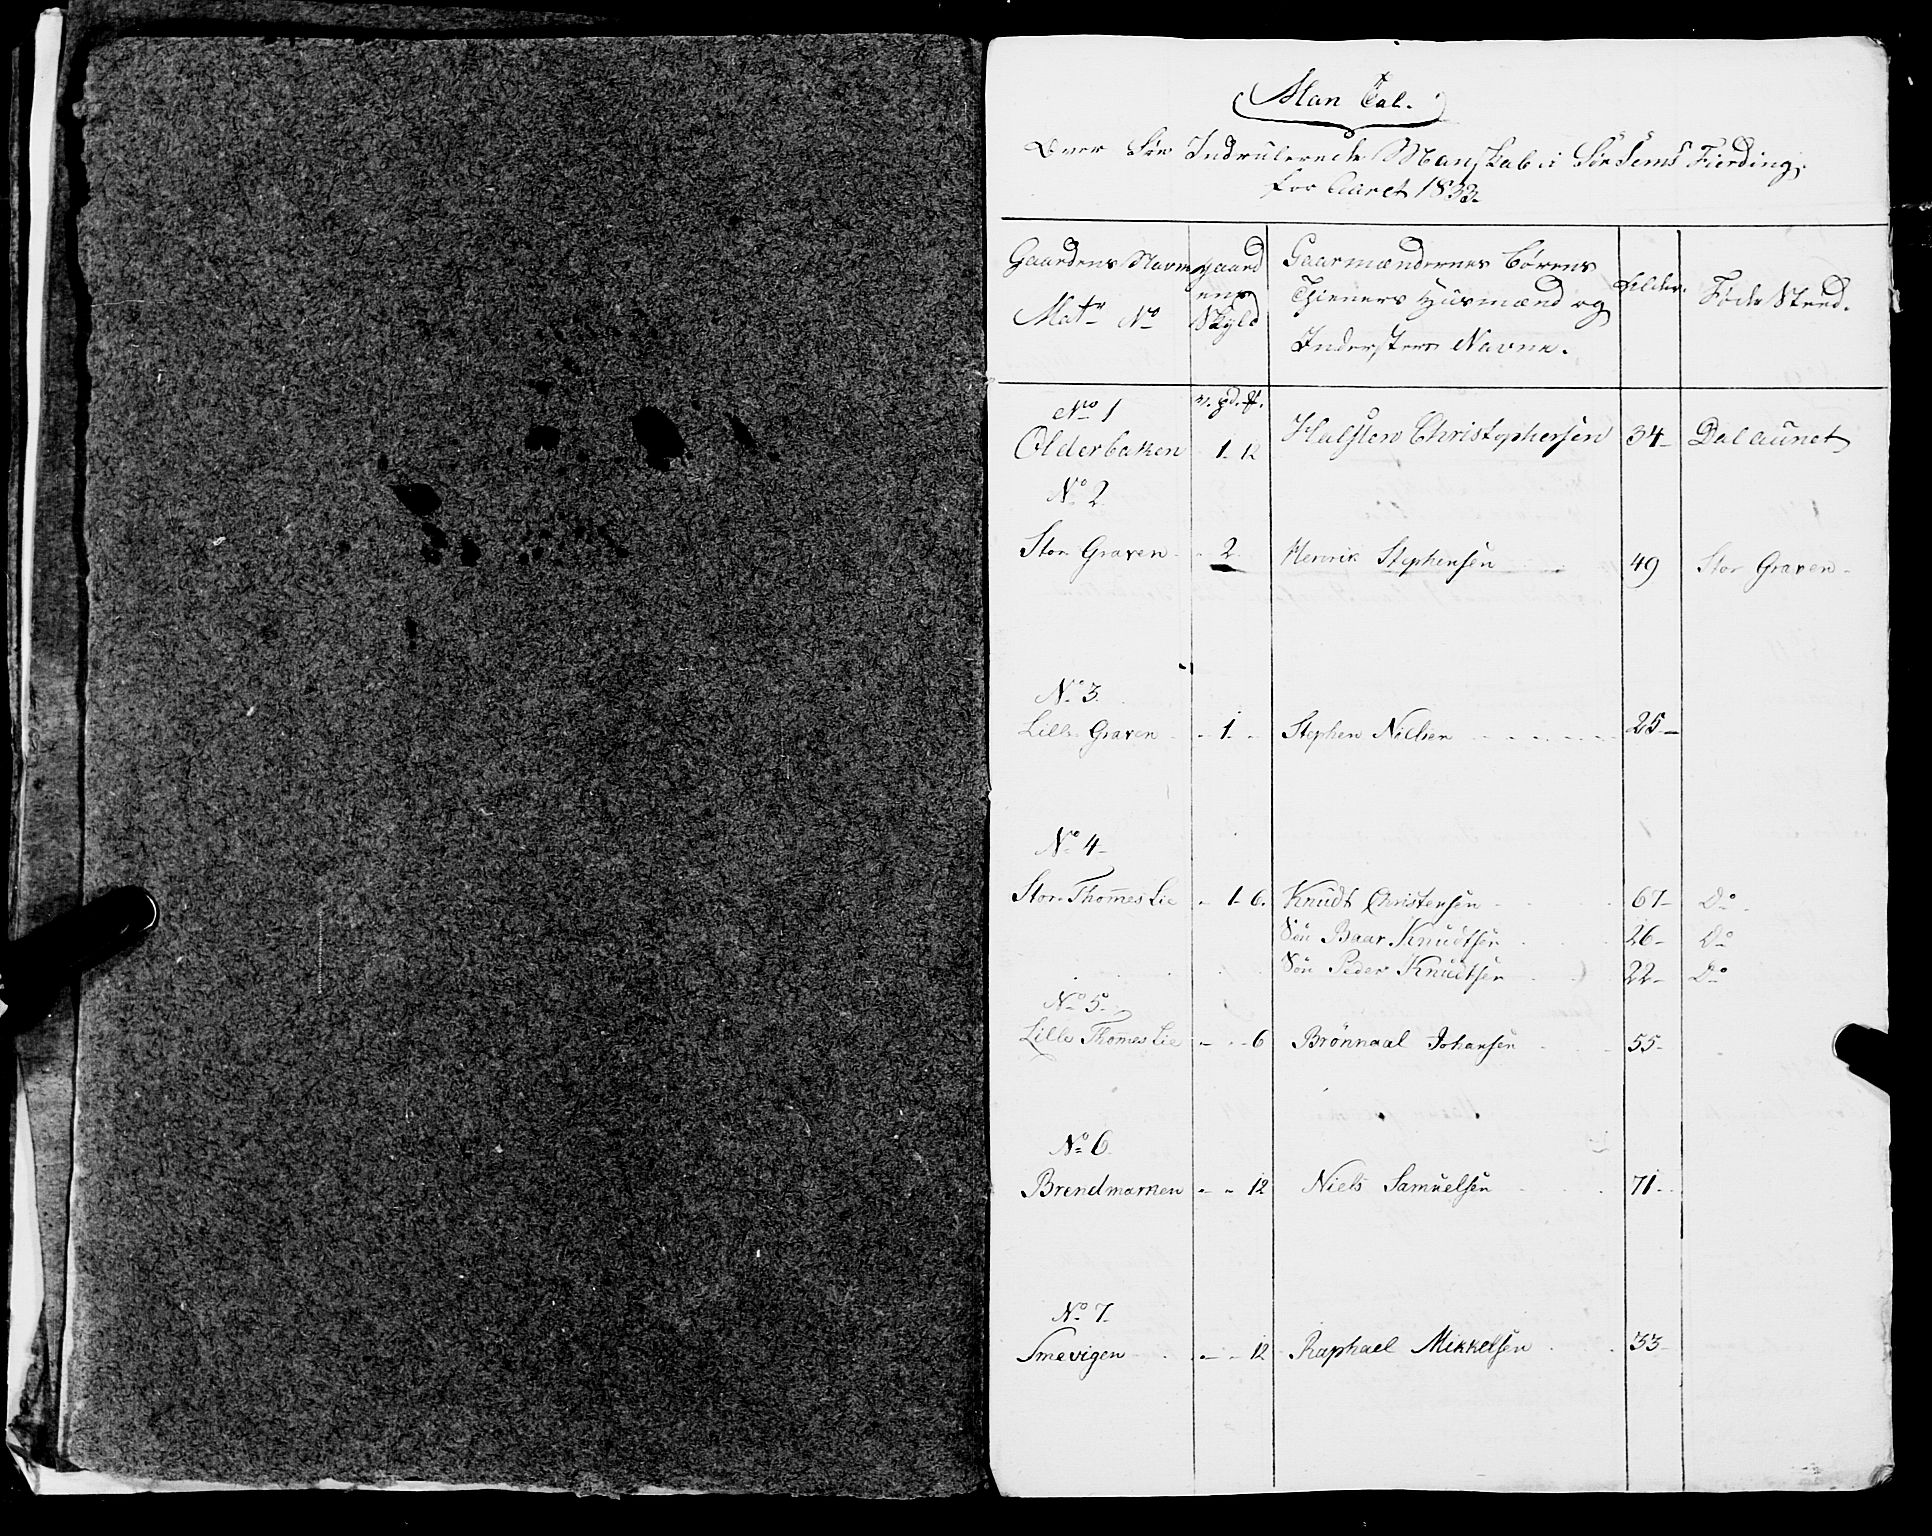 Man Tal.
Over Søe Indrulerede Manskab i Sør Sems Fierding,
for Aaret 1833.
Gaardens Navn Matr No
gaardens Skyld
Gaarmændernes Børens
Thieners Huusmænd og
Indersters Navne.
Alder.
Føde Sted.
No 1 v. pd. ℔.
Olderbaken 1. 12 Halsten Christophersen 34- Dalaunet
No 2
Stor Graven - 2 Henrik Stephensen 49 Stor Graven -
No 3.
Lille Graven - - 1. - Stephen Nielsen 25-
No 4-
Stor Thom̄es Lie - 1- 6. Knudt Christensen - 67- Do
Søn Baar Knudtsen 26- Do
Søn Peder Knudtsen 22- Do
No 5.
Lille Thom̄es Lie - - - 6 Brönnaal Johansen 55-
No 6.
Brendmarken - - 12 Niels Samuelsen 71-
No 7.
Smevigen - - 12 Raphael Mikkelsen 33-